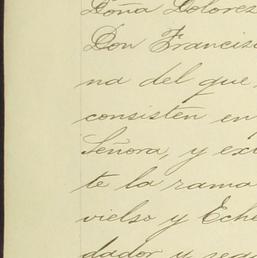 Doña Dolores
Don Francis
na del que
consisten en
Señora, y ex
te la rama
vielso y Eche
dador y seg